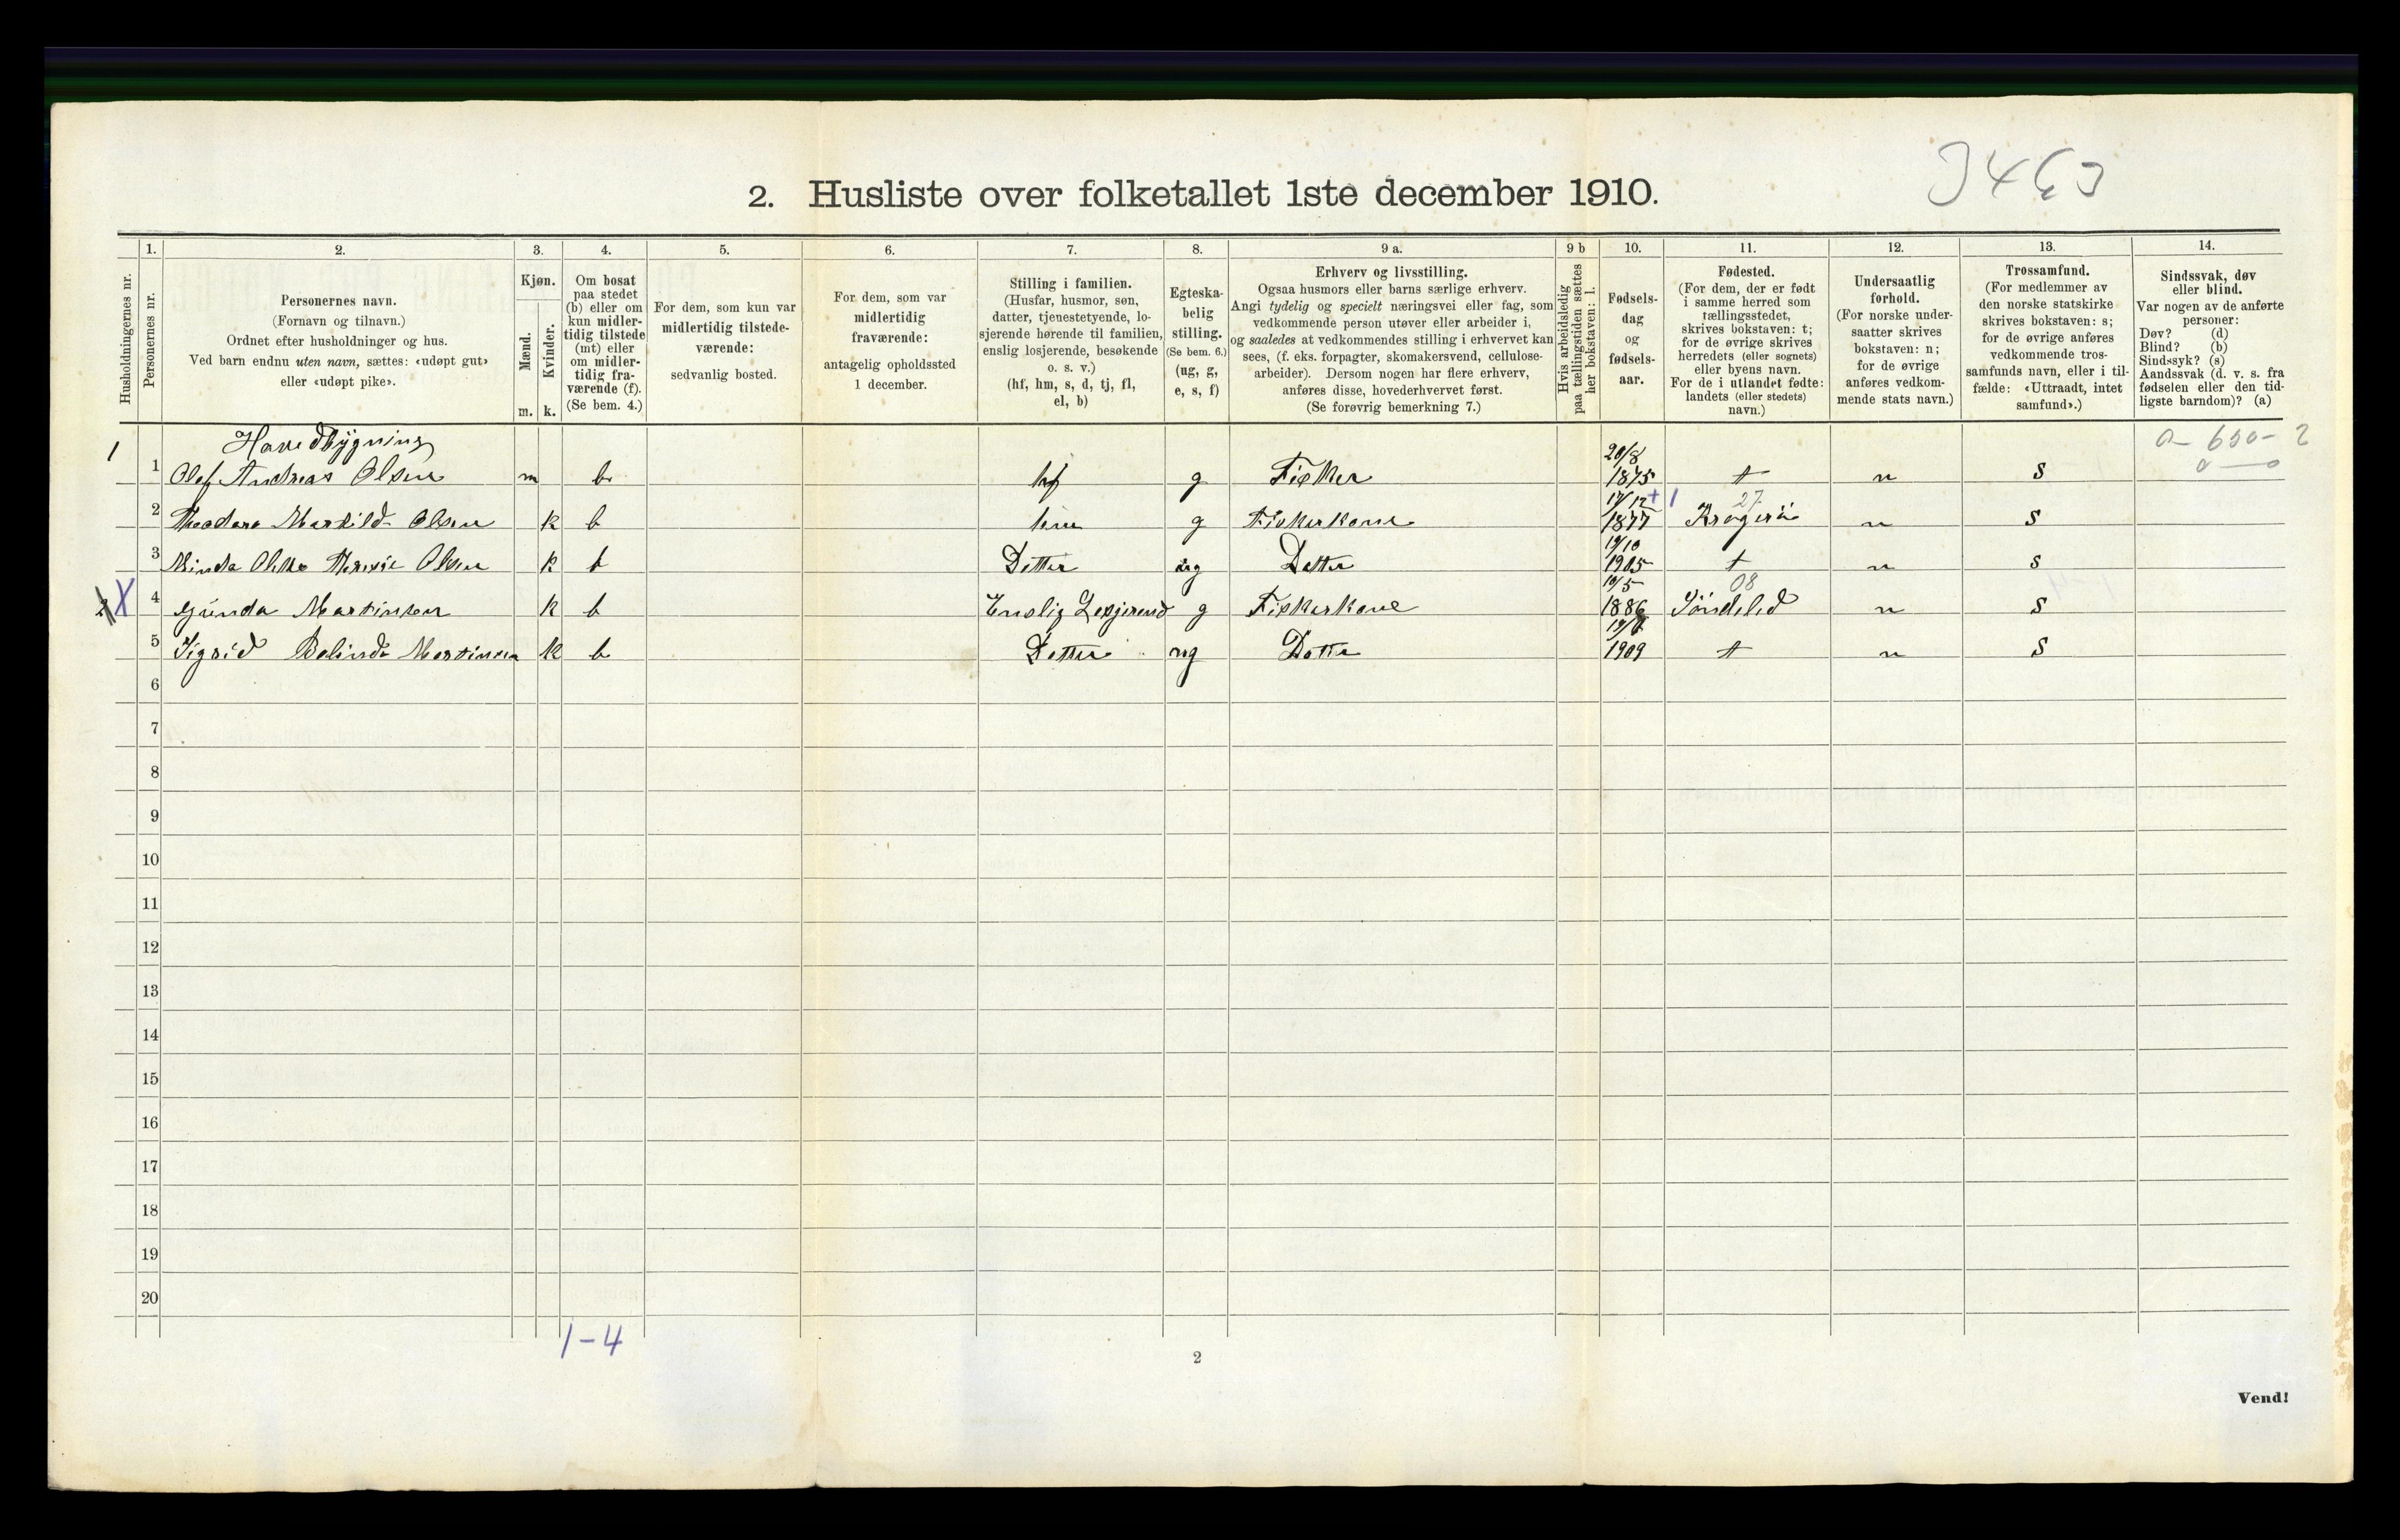 3463
2. Husliste over folketallet 1ste december 1910.
Husholdningernes nr.
1.
Personernes nr.
2.
Personernes navn.
(Fornavn og tilnavn.)
Ordnet efter husholdninger og hus.
Ved barn endnu uten navn, sættes: «udøpt gut»
eller «udøpt pike».
3.
Kjøn.
Mænd.
Kvinder.
m. k.
4.
Om bosat
paa stedet
(b) eller om
kun midler-
tidig tilstede
(mt) eller
om midler-
tidig fra-
værende (f).
(Se bem. 4.)
5.
For dem, som kun var
midlertidig tilstede-
værende:
sedvanlig bosted.
6.
For dem, som var
midlertidig
fraværende:
antagelig opholdssted
1 december.
7.
Stilling i familien.
(Husfar, husmor, søn,
datter, tjenestetyende, lo-
sjerende hørende til familien,
enslig losjerende, besøkende
o. s. v.)
(hf, hm, s, d, tj, fl,
el, b)
8.
Egteska-
belig
stilling.
(Se bem. 6.)
(ug, g,
e, s, f)
9 a.
Erhverv og livsstilling.
Ogsaa husmors eller barns særlige erhverv.
Angi tydelig og specielt næringsvei eller fag, som
vedkommende person utøver eller arbeider i,
og saaledes at vedkommendes stilling i erhvervet kan
sees, (f. eks. forpagter, skomakersvend, cellulose-
arbeider). Dersom nogen har flere erhverv,
anføres disse, hovederhvervet først.
(Se forøvrig bemerkning 7.)
9 b
Hvis arbeidsledig
paa tællingstiden sættes
her bokstaven: l.
10.
Fødsels-
dag
og
fødsels-
aar.
11.
Fødested.
(For dem, der er født
i samme herred som
tællingsstedet,
skrives bokstaven: t;
for de øvrige skrives
herredets (eller sognets)
eller byens navn.
For de i utlandet fødte:
landets (eller stedets)
navn.)
12.
Undersaatlig
forhold.
(For norske under-
saatter skrives
bokstaven: n;
for de øvrige
anføres vedkom-
mende stats navn.)
13.
Trossamfund.
(For medlemmer av
den norske statskirke
skrives bokstaven: s;
for de øvrige anføres
vedkommende tros-
samfunds navn, eller i til-
fælde: «Uttraadt, intet
samfund».)
14.
Sindssvak, døv
eller blind.
Var nogen av de anførte
personer:
Døv? (d)
Blind? (b)
Sindssyk? (s)
Aandssvak (d. v. s. fra
fødselen eller den tid-
ligste barndom)? (a)
0 - 650 - 2
0 — 0
1 Hovedbygning
1 Olef Andreas Olsen m b hf g Fisker 20/8 1875 t n s
2 Theodora Markild Olsen k b hm g Fiskerkone 17/12 1877 + 1 27 Kragerö n s
3 Minda Olette Theresie Olsen k b Detter ug Datter 19/10 1905 t n s
2 X 4 Gunda Martinsen k b Enslig Losjerend g Fiskerkone 10/5 1886 08 Söndeled n s
5 Sigrid Belinda Martinsen k b Detter ug Datter 1909 t n s
6
7
8
9
10
11
12
13
14
15
16
17
18
19
20
1-4
2
Vend!